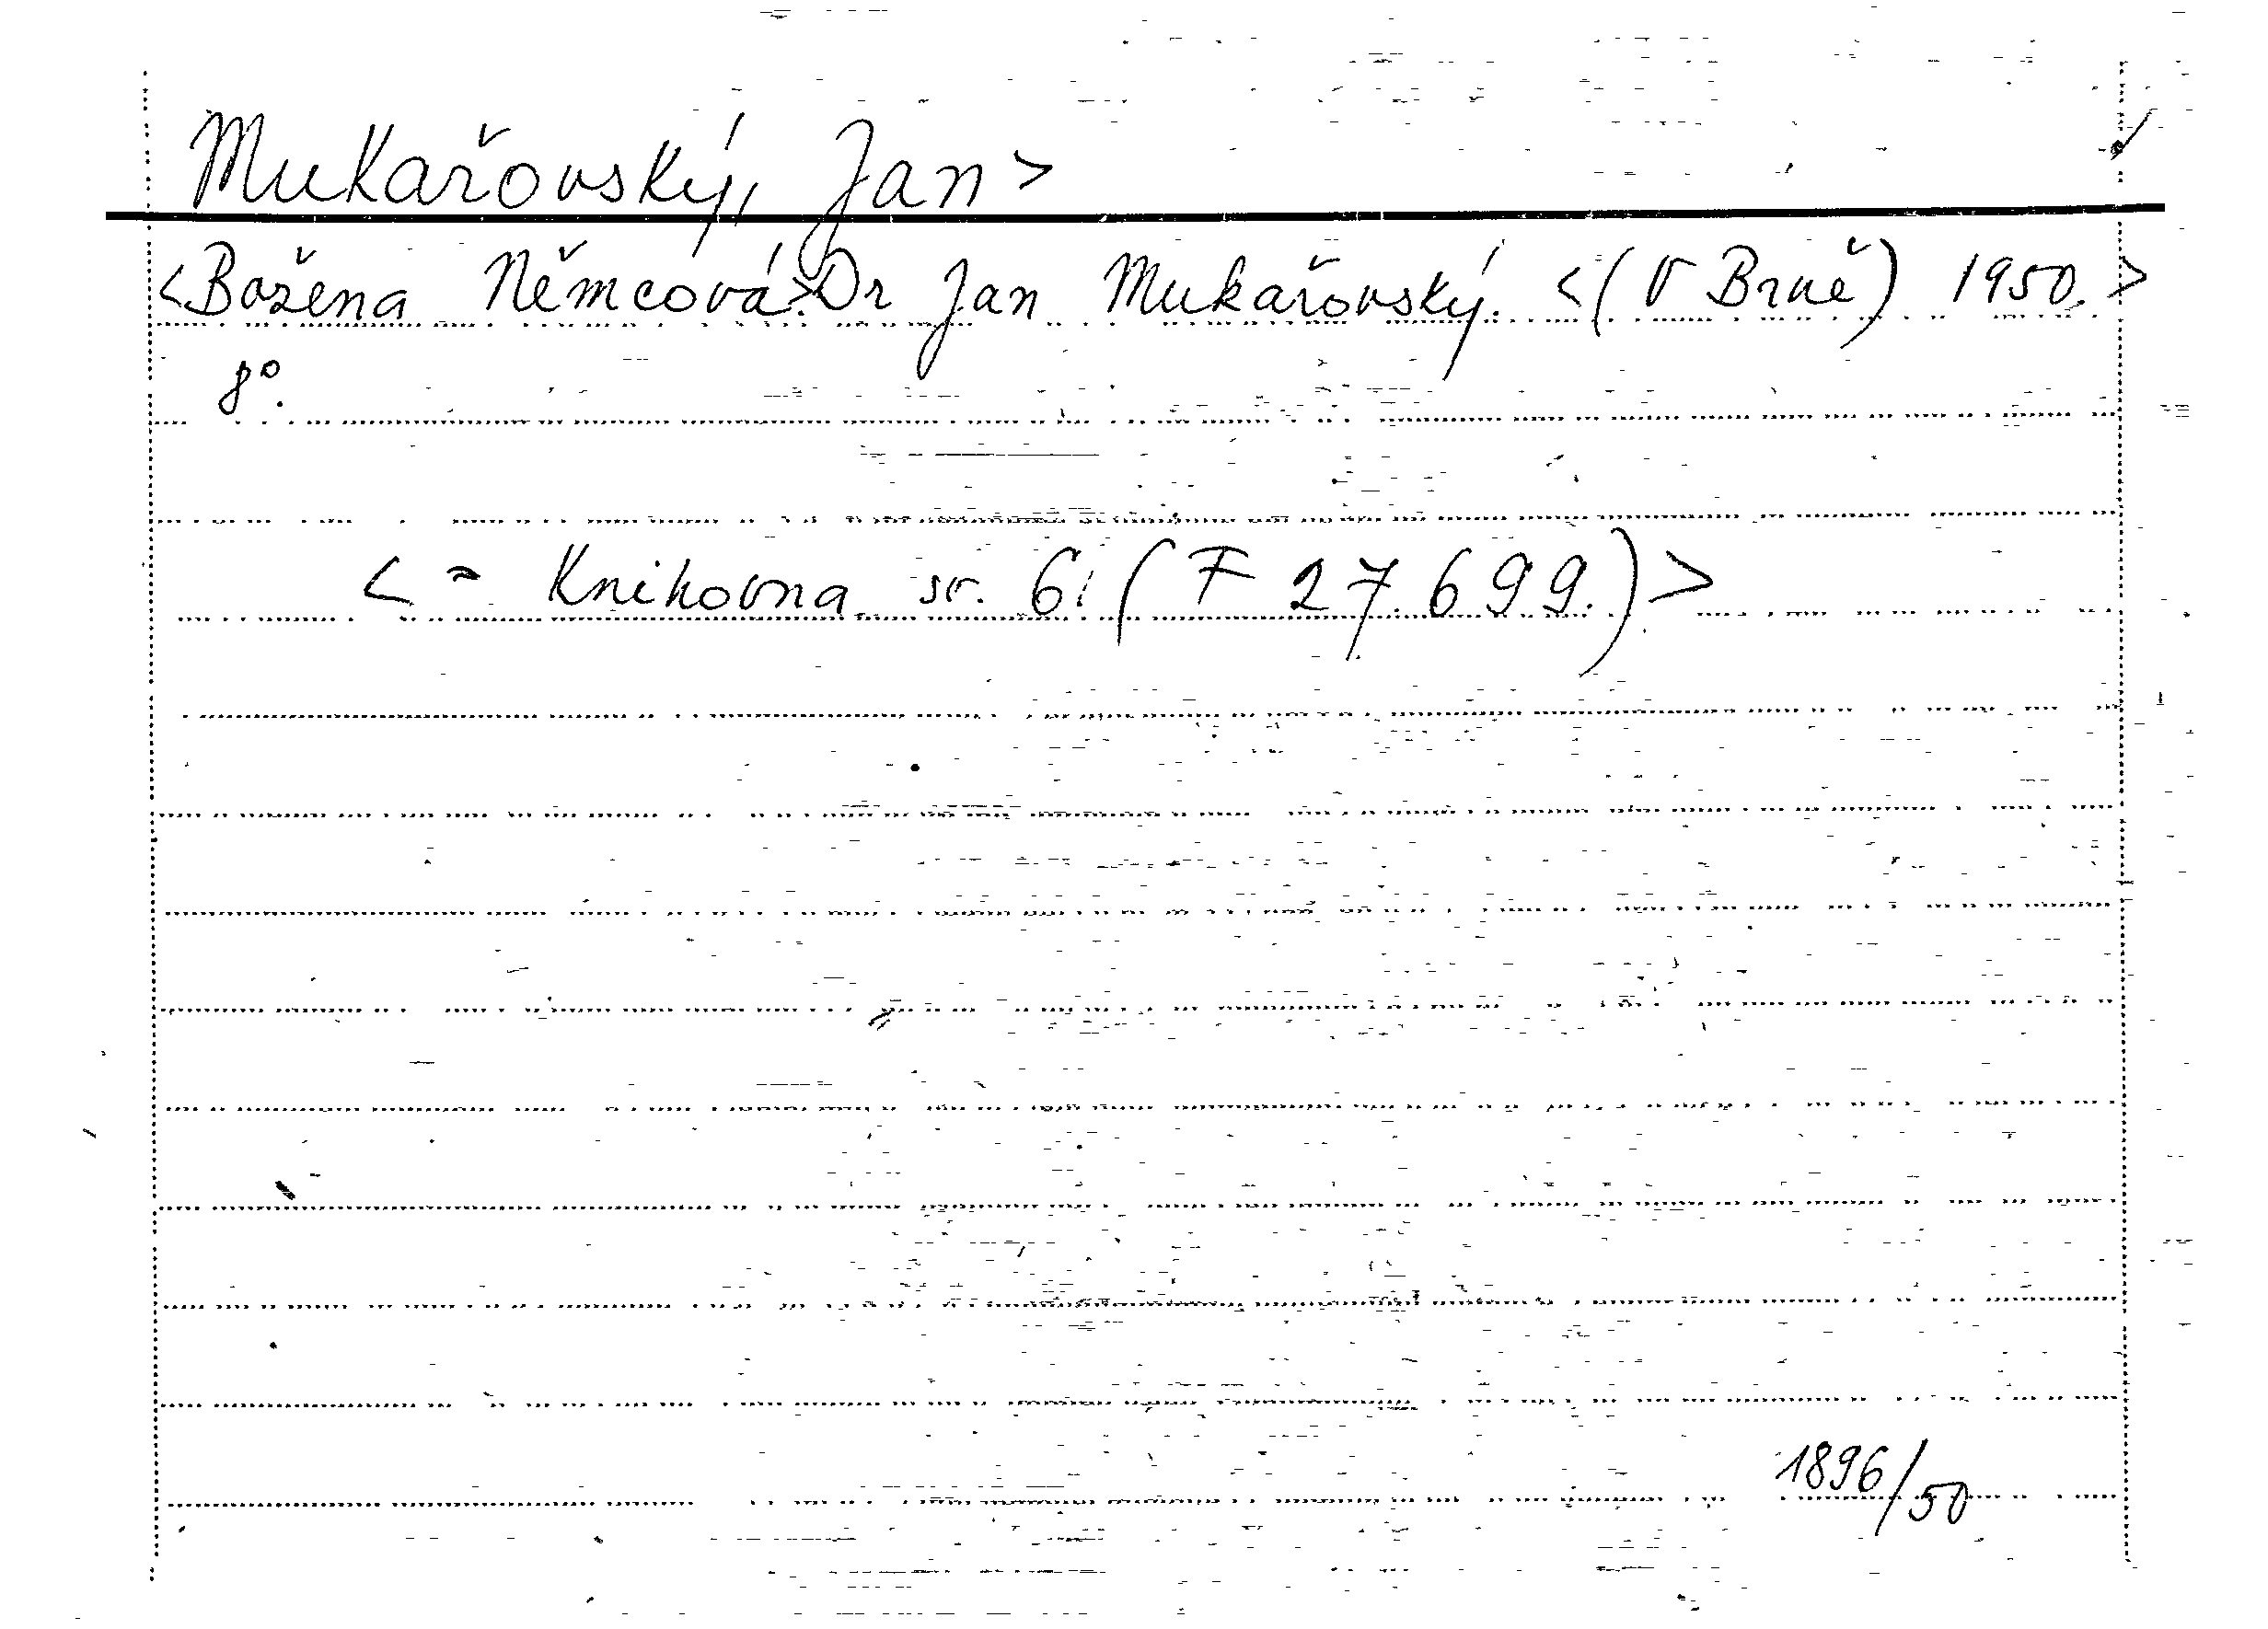 Mukařovský, Jan>
<Božena Němcová.>Dr Jan Mukařovský. <(V Brně) 1950.>
8°.
<= Knihovna sv. 6. (F 27.699.)>
1896/50